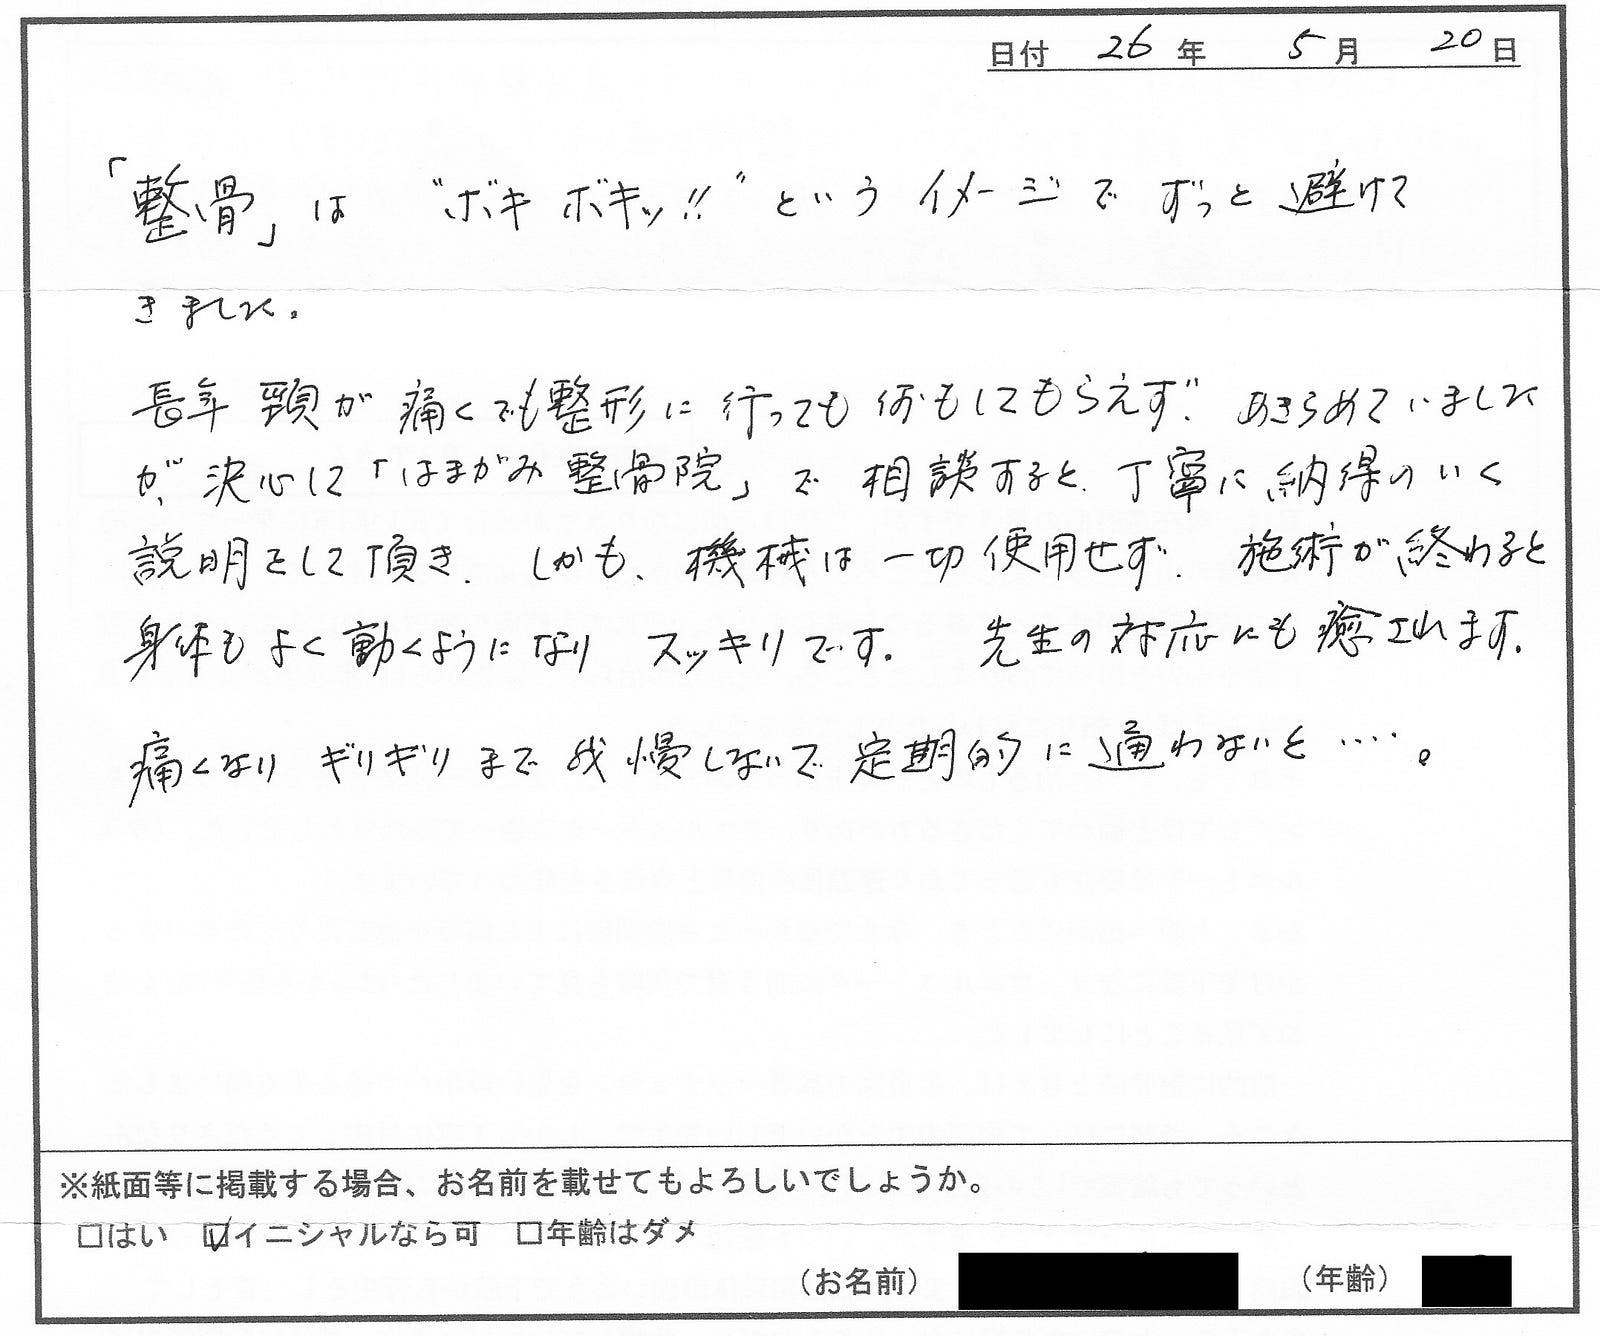 日付 26年 5月 20日
「整骨」は “ボキ ボキッ!!” という イメージで ずっと 避けて
きました。
長年 頸が 痛くても整形に 行っても 何もしてもらえず、あきらめていました
が、決心して「はまがみ整骨院」で 相談すると、丁寧に 納得のいく
説明をして頂き、しかも、機械は 一切 使用せず、施術が終わると
身体も よく 動くようになり スッキリです。 先生の 対応にも 癒されます。
痛くなり ギリギリまで 我慢しないで 定期的に 通わないと ‥‥。
※紙面等に掲載する場合、お名前を載せてもよろしいでしょうか。
□はい ☑イニシャルなら可 □年齢はダメ
(お名前) (年齢)